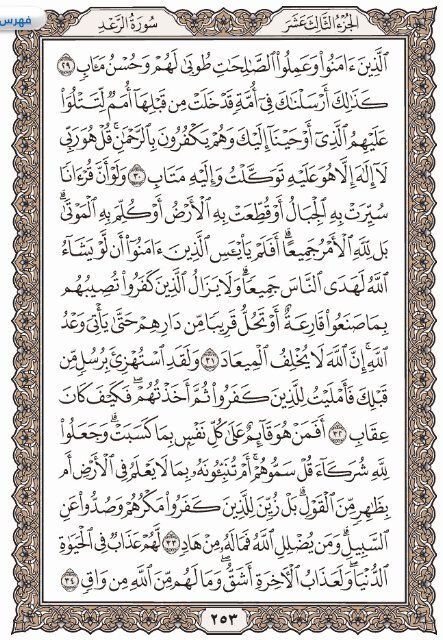 فهرس
الجُزْءُ الثَّالِثَ عَشَرَ
سُورَةُ الرَّعْدِ
الَّذِينَ ءَامَنُوا۟ وَعَمِلُوا۟ الصَّـٰلِحَـٰتِ طُوبَىٰ لَهُمْ وَحُسْنُ مَـَٔابٍ ٢٩
كَذَٰلِكَ أَرْسَلْنَـٰكَ فِىٓ أُمَّةٍ قَدْ خَلَتْ مِن قَبْلِهَآ أُمَمٌ لِّتَتْلُوَا۟
عَلَيْهِمُ الَّذِىٓ أَوْحَيْنَآ إِلَيْكَ وَهُمْ يَكْفُرُونَ بِالرَّحْمَـٰنِ ۚ قُلْ هُوَ رَبِّى
لَآ إِلَـٰهَ إِلَّا هُوَ عَلَيْهِ تَوَكَّلْتُ وَإِلَيْهِ مَتَابِ ٣٠ وَلَوْ أَنَّ قُرْءَانًا
سُيِّرَتْ بِهِ الْجِبَالُ أَوْ قُطِّعَتْ بِهِ الْأَرْضُ أَوْ كُلِّمَ بِهِ الْمَوْتَىٰ ۗ
بَل لِّلَّهِ الْأَمْرُ جَمِيعًا ۗ أَفَلَمْ يَا۟يْـَٔسِ الَّذِينَ ءَامَنُوٓا۟ أَن لَّوْ يَشَآءُ
اللَّهُ لَهَدَى النَّاسَ جَمِيعًا ۗ وَلَا يَزَالُ الَّذِينَ كَفَرُوا۟ تُصِيبُهُم
بِمَا صَنَعُوا۟ قَارِعَةٌ أَوْ تَحُلُّ قَرِيبًا مِّن دَارِهِمْ حَتَّىٰ يَأْتِىَ وَعْدُ
اللَّهِ ۚ إِنَّ اللَّهَ لَا يُخْلِفُ الْمِيعَادَ ٣١ وَلَقَدِ اسْتُهْزِئَ بِرُسُلٍ مِّن
قَبْلِكَ فَأَمْلَيْتُ لِلَّذِينَ كَفَرُوا۟ ثُمَّ أَخَذْتُهُمْ ۖ فَكَيْفَ كَانَ
عِقَابِ ٣٢ أَفَمَنْ هُوَ قَآئِمٌ عَلَىٰ كُلِّ نَفْسٍۭ بِمَا كَسَبَتْ ۗ وَجَعَلُوا۟
لِلَّهِ شُرَكَآءَ قُلْ سَمُّوهُمْ ۚ أَمْ تُنَبِّـُٔونَهُۥ بِمَا لَا يَعْلَمُ فِى الْأَرْضِ أَم
بِظَـٰهِرٍ مِّنَ الْقَوْلِ ۗ بَلْ زُيِّنَ لِلَّذِينَ كَفَرُوا۟ مَكْرُهُمْ وَصُدُّوا۟ عَنِ
السَّبِيلِ ۗ وَمَن يُضْلِلِ اللَّهُ فَمَا لَهُۥ مِنْ هَادٍ ٣٣ لَّهُمْ عَذَابٌ فِى الْحَيَوٰةِ
الدُّنْيَا ۖ وَلَعَذَابُ الْـَٔاخِرَةِ أَشَقُّ ۖ وَمَا لَهُم مِّنَ اللَّهِ مِن وَاقٍ ٣٤
٢٥٣